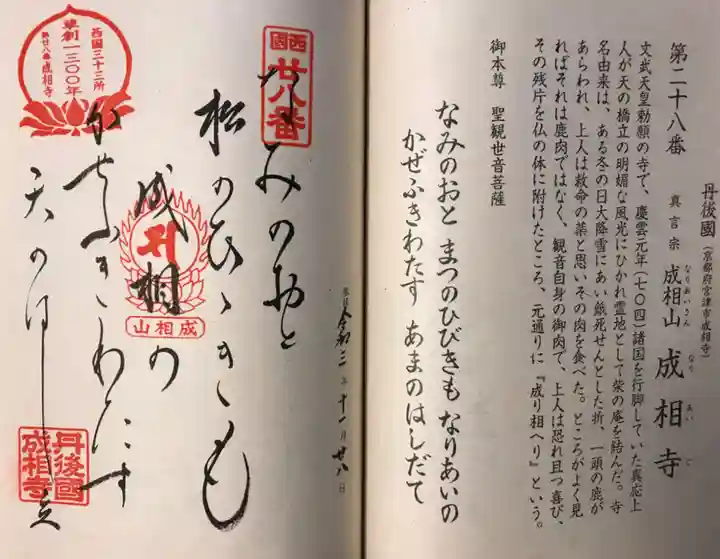 丹後國(京都府宮津市成相寺)
真言宗 成相山 成相寺
なりあいさん なり あい じ
第二十八番
文武天皇勅願の寺で、慶雲元年(七〇四)諸国を行脚していた真応上
人が天の橋立の明媚な風光にひかれ霊地として柴の庵を結んだ。寺
名由来は、ある冬の日大降雪にあい餓死せんとした折、一頭の鹿が
あらわれ、上人は救命の菜と思いその肉を食べた。ところがよく見
ればそれは鹿肉ではなく、観音自身の御肉で、上人は恐れ且つ喜び、
その残片を仏の体に附けたところ、元通りに『成り相へり』という。
御本尊 聖観世音菩薩
なみのおと まつのひびきも なりあいの
かぜふきわたす あまのはしだて
奉拝 令和三年十一月廿八日
西國
廿八番
なみのおと
松のひゝきも
成相の
成相山
かせふきわたす
天のはし立
西国三十三所
草創一三〇〇年
第廿八番成相寺
丹後國
成相寺